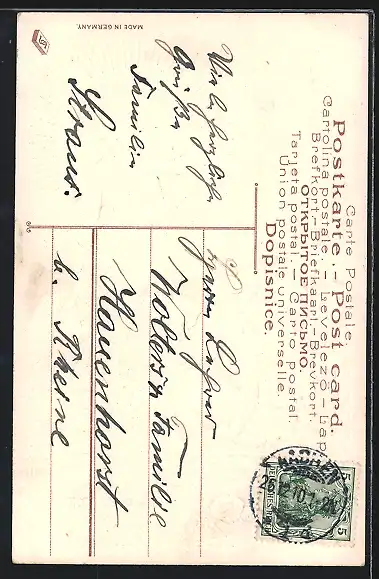 Carte Postale
Postkarte. — Post card.
Cartolina postale. — Levelező-Lap
Brefkort.-Briefkaart.-Brevkort.
ОТКРЫТОЕ ПИСЬМО.
Tarjeta postal. — Carto postal.
Union postale universelle.
Dopisnice.
MADE IN GERMANY.
Viele herzliche
Grüße
Familie
Straus.
Herrn Lehrer
Wolters u Familie
Hauenhorst
b. Rheine
5 5
DEUTSCHES REICH